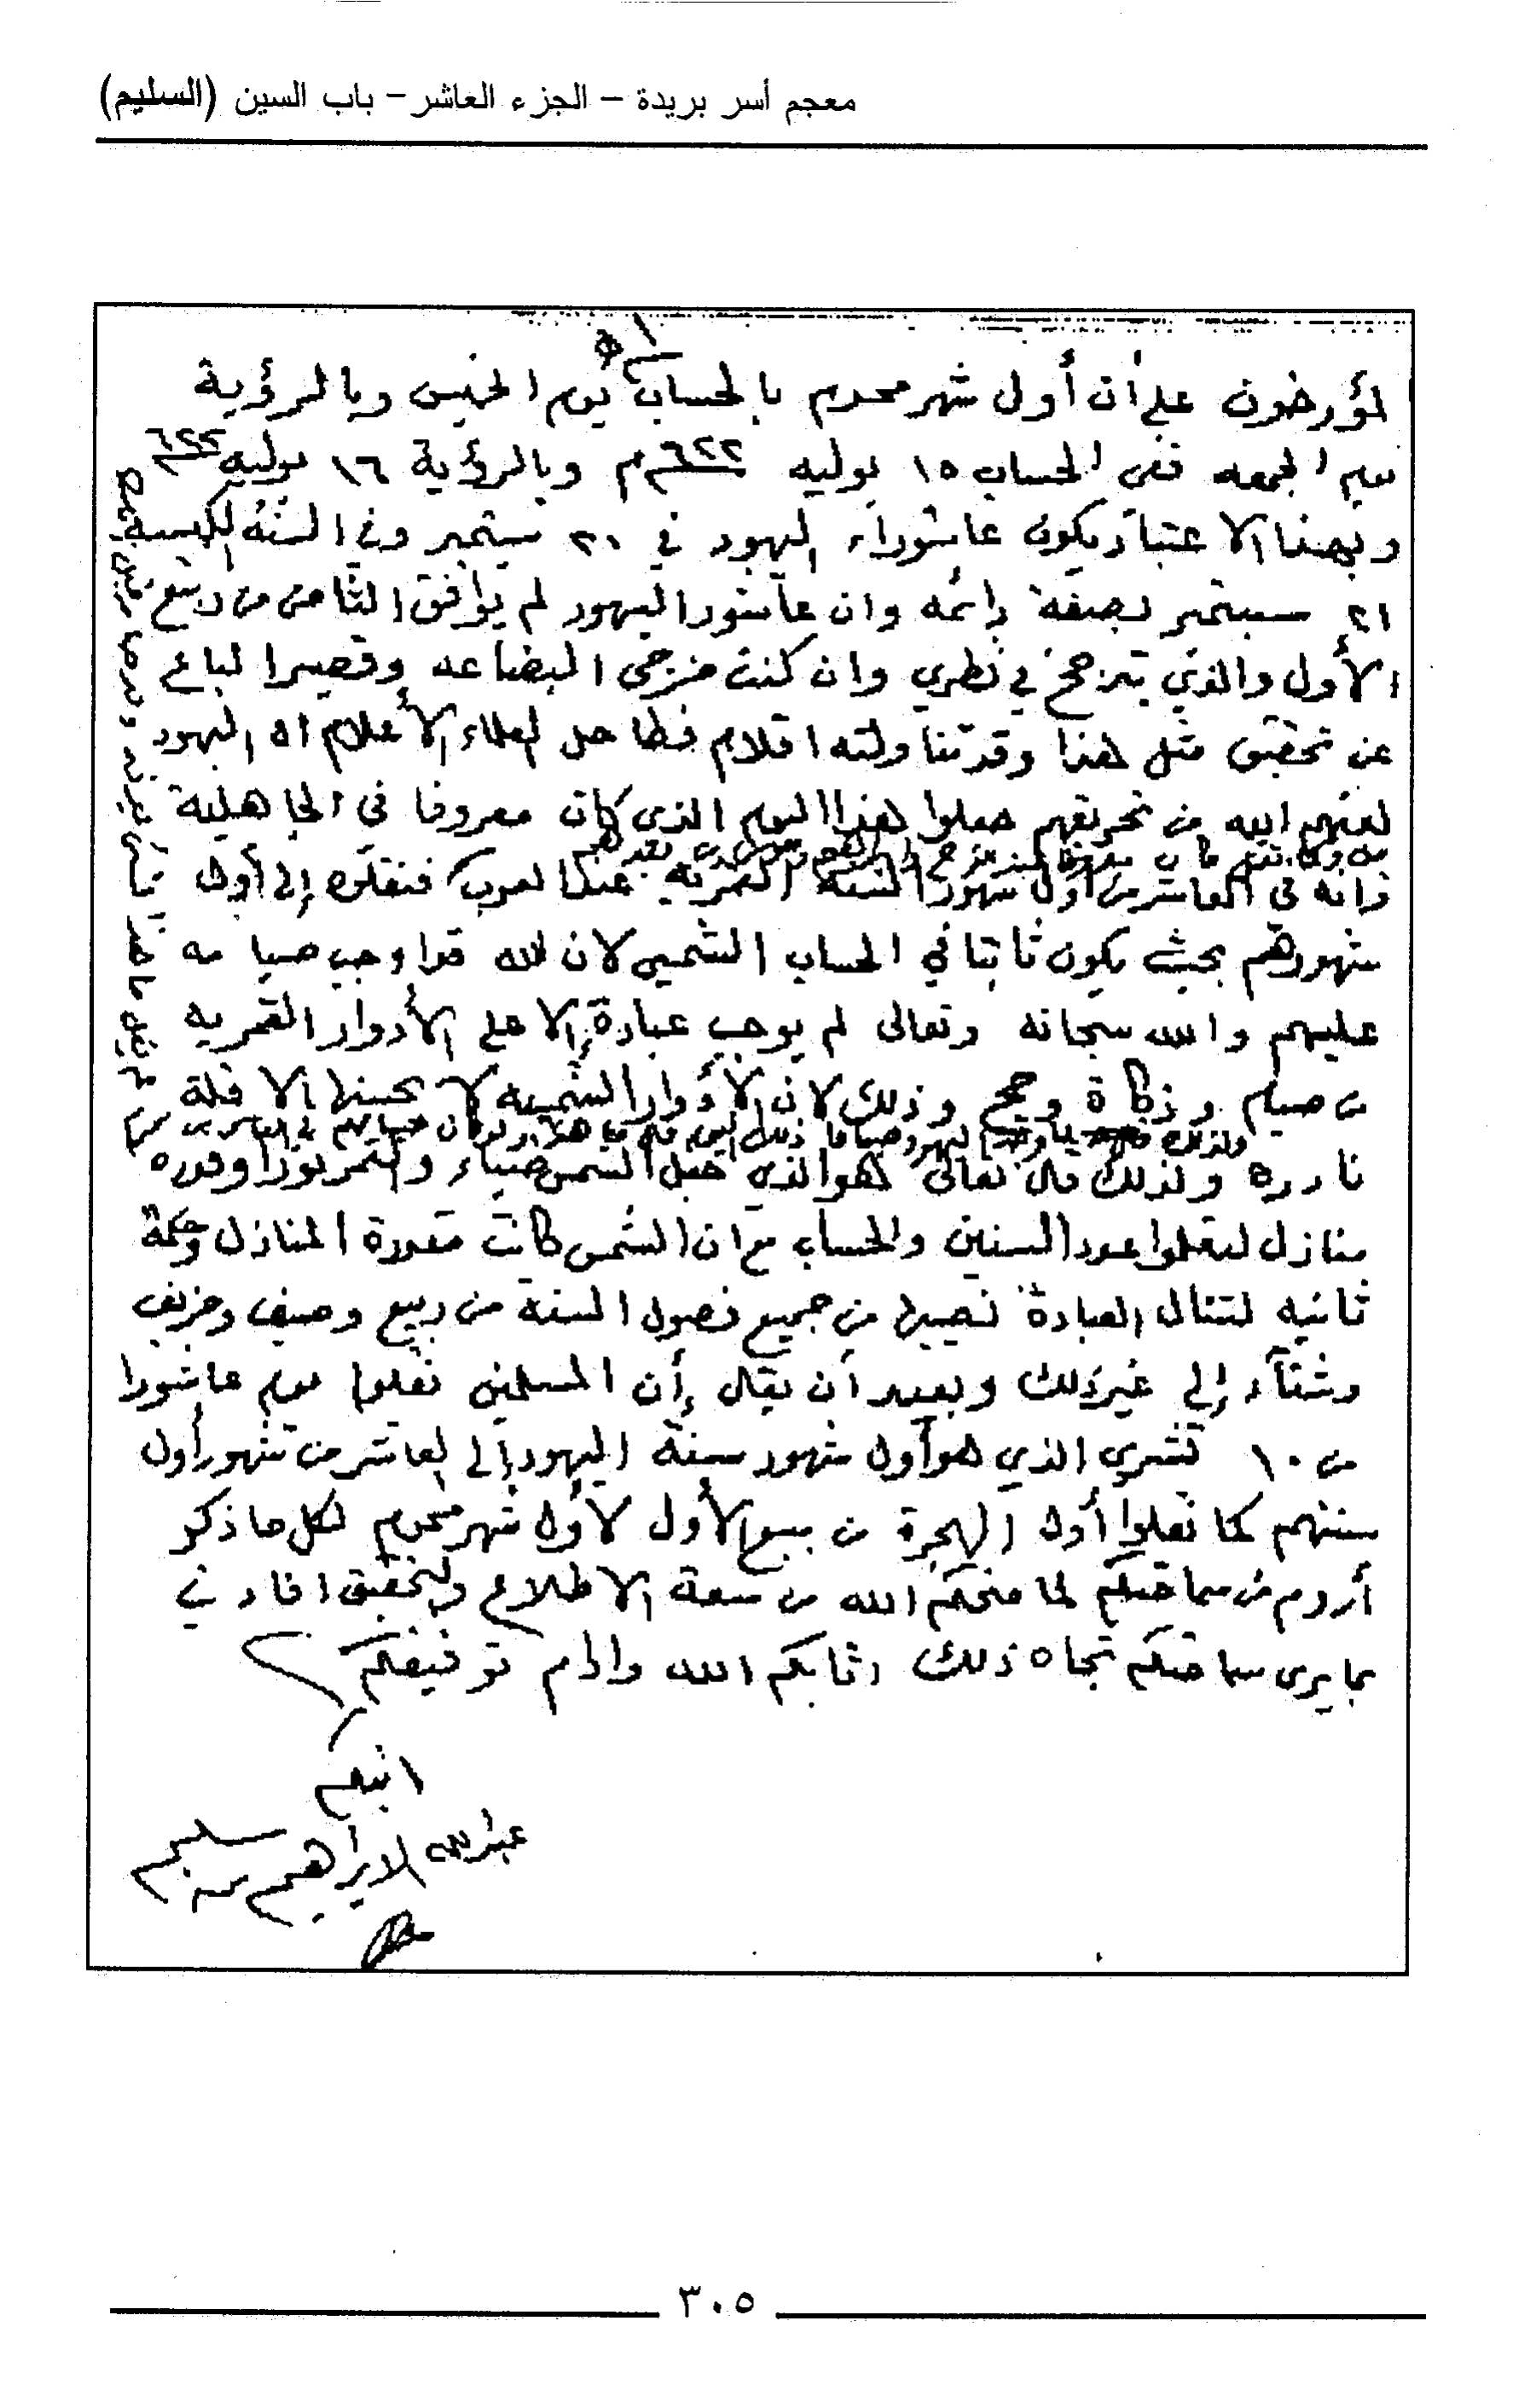 معجم أسر بريدة – الجزء العاشر – باب السين (السليم)
لمؤرخون على أن أول شهر محرم بالحساب يوم الخميس وبالرؤية
يوم الجمعه ففي الحساب ١٥ يوليه ٦٢٢م وبالرؤية ١٦ يوليه ٦٢٢
وبهذا الاعتبار يكون عاشوراء اليهود في ٢٠ سبتمبر وفي السنة الكبيسة
٢١ سبتمبر بصفة دائمه وان عاشورا اليهود لم يوافق الثامن من ربيع
الأول والذي يترجح في نظري وان كنت مزجى البضاعه وقصير الباع
عن تحقيق مثل هذا وقد تناولته اقلام فطاحل العلماء الأعلام ان اليهود
لعنهم الله من تحريفهم جعلوا هذا اليوم الذي كان معروفا في الجاهلية
وانه في العاشر من أول شهور السنة القمرية عند العرب فنقلوه إلى أول
شهورهم بحيث يكون ثابتا في الحساب الشمسي لان الله قد اوجب صيامه
عليهم والله سبحانه وتعالى لم يوجب عبادة إلا على الأدوار القمريه
من صيام وزكاة وحج وذلك لان الأدوار الشمسيه لا يحسبها إلا قلة
نادره ولذلك قال تعالى هو الذي جعل الشمس ضياء والقمر نورا وقدره
منازل لتعلموا عدد السنين والحساب مع ان الشمس كانت مقدرة المنازل وحكمة
ثانيه لتنال العبادة نصيبها من جميع فصول السنة من ربيع وصيف وخريف
وشتاء إلى غير ذلك وبعيد أن يقال إن المسلمين نقلوا يوم عاشورا
من ١٠ تشري الذي هو أول شهور سنة اليهود إلى العاشر من شهور أول
سنتهم كما نقلوا أول الهجرة من ربيع الأول لأول شهر محرم لكل ما ذكر
أروم من سماحتكم لما منحكم الله من سعة الاطلاع والتحقيق افادتي
بما يرى سماحتكم تجاه ذلك اثابكم الله وادام توفيقكم
ابنكم
عبدالله الابراهيم سليم
٣٠٥